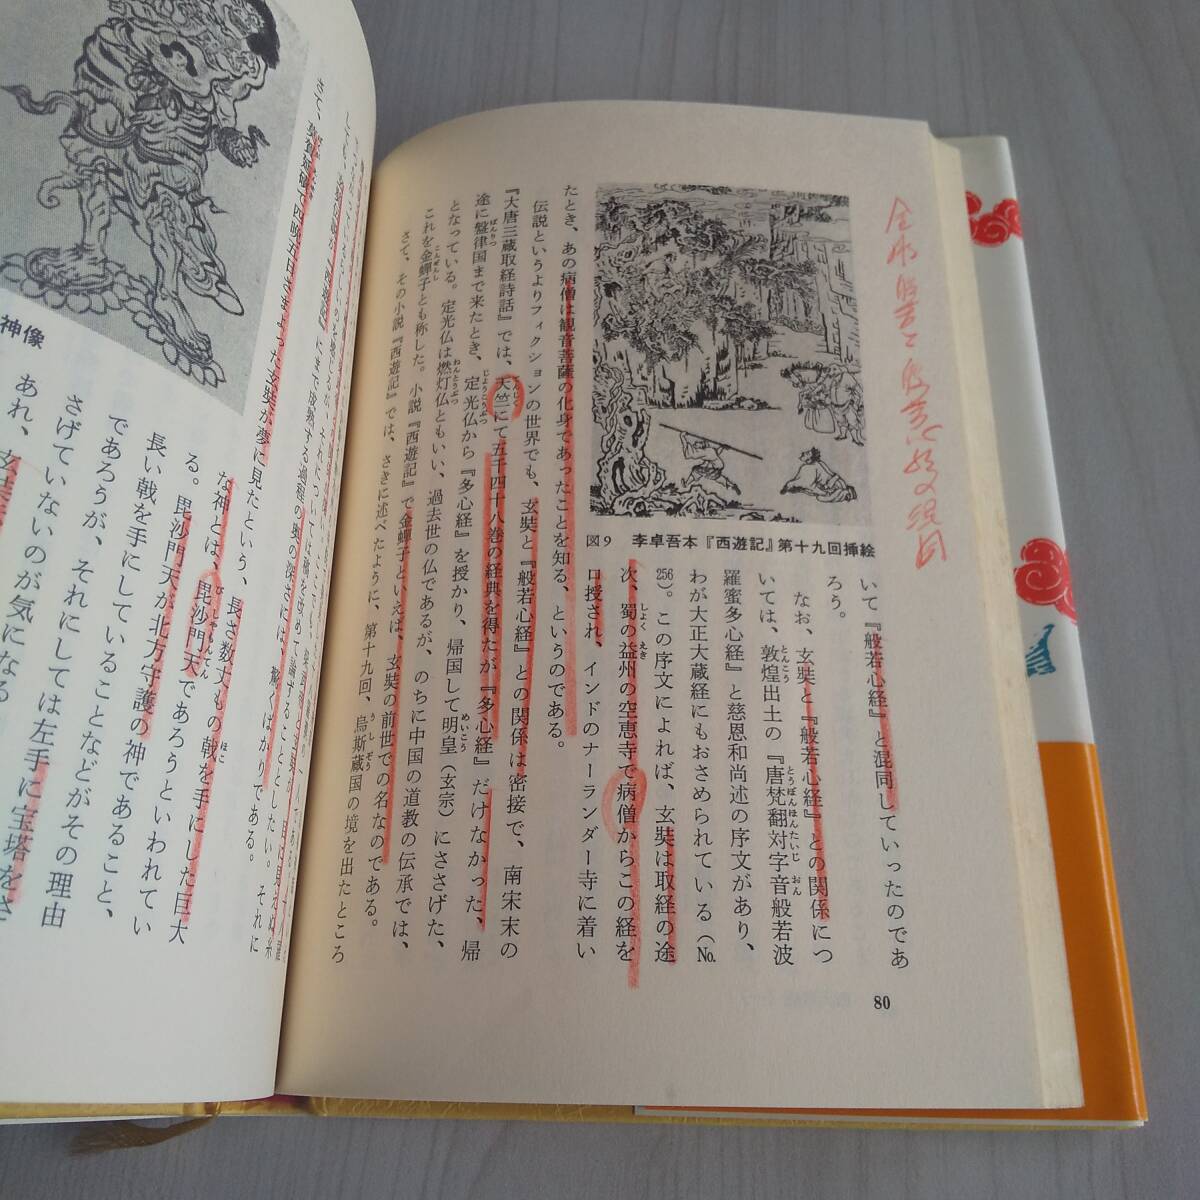 いて『般若心経』と混同していったのであ
ろう。
なお、玄奘と『般若心経』との関係につ
いては、敦煌出土の『唐梵翻対字音般若波
羅蜜多心経』と慈恩和尚述の序文があり、
わが大正大蔵経にもおさめられている(No.
256)。この序文によれば、玄奘は取経の途
次、蜀の益州の空恵寺で病僧からこの経を
口授され、インドのナーランダー寺に着い
図9 李卓吾本『西遊記』第十九回挿絵
たとき、あの病僧は観音菩薩の化身であったことを知る、というのである。
伝説というよりフィクションの世界でも、玄奘と『般若心経』との関係は密接で、南宋末の
『大唐三蔵取経詩話』では、天竺にて五千四十八巻の経典を得たが『多心経』だけなかった、帰
途に盤律国まで来たとき、定光仏から『多心経』を授かり、帰国して明皇(玄宗)にささげた、
となっている。定光仏は燃灯仏ともいい、過去世の仏であるが、のちに中国の道教の伝承では、
これを金蟬子とも称した。小説『西遊記』で金蟬子といえば、玄奘の前世での名なのである。
さて、その小説『西遊記』では、さきに述べたように、第十九回、烏斯蔵国の境を出たところ
80
さて、莫賀延磧で四晩五日さまよった玄奘が夢に見たという、長さ数丈もの戟を手にした巨大
な神とは、毘沙門天であろうといわれてい
る。毘沙門天が北方守護の神であること、
長い戟を手にしていることなどがその理由
であろうが、それにしては左手に宝塔をさ
さげていないのが気になる
あれ、玄奘
神像